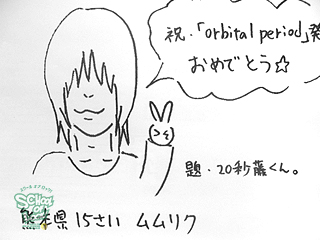 祝・「orbital period」発
おめでとう☆
題・20秒藤くん。
熊本県 15さい ムムリク